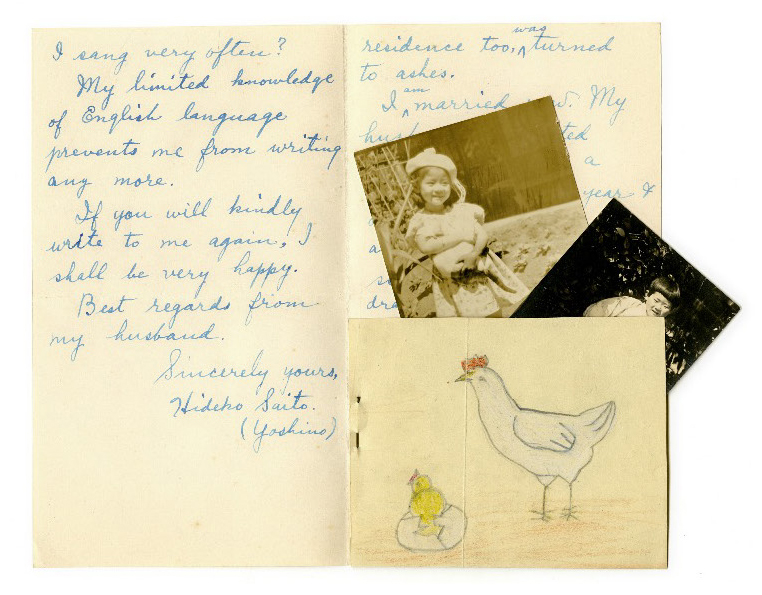 I sang very often?
My limited knowledge
of English language
prevents me from writing
any more.
If you will kindly
write to me again, I
shall be very happy.
Best regards from
my husband.
Sincerely yours,
Hideko Saito.
(Yoshino)
residence too, was turned
to ashes.
I am married My
a
year &